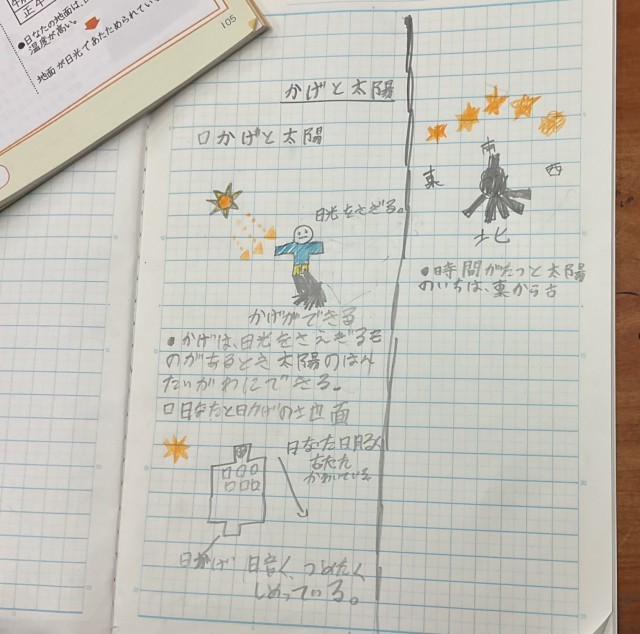 ●日なたの地面は、
温度が高い。
地面が日光であたためられてい
105
かげと太陽
□かげと太陽
日光をさぎる。
かげができる
●かげは、日光をさえぎるも
のがあるとき太陽のはん
たいがわにできる。
□日なたと日かげの地面
日なた日明るく
かわいている
日かげ 日音く、つめたく
しめっている。
南
東
西
北
●時間がたつと太陽
のいちは、東から